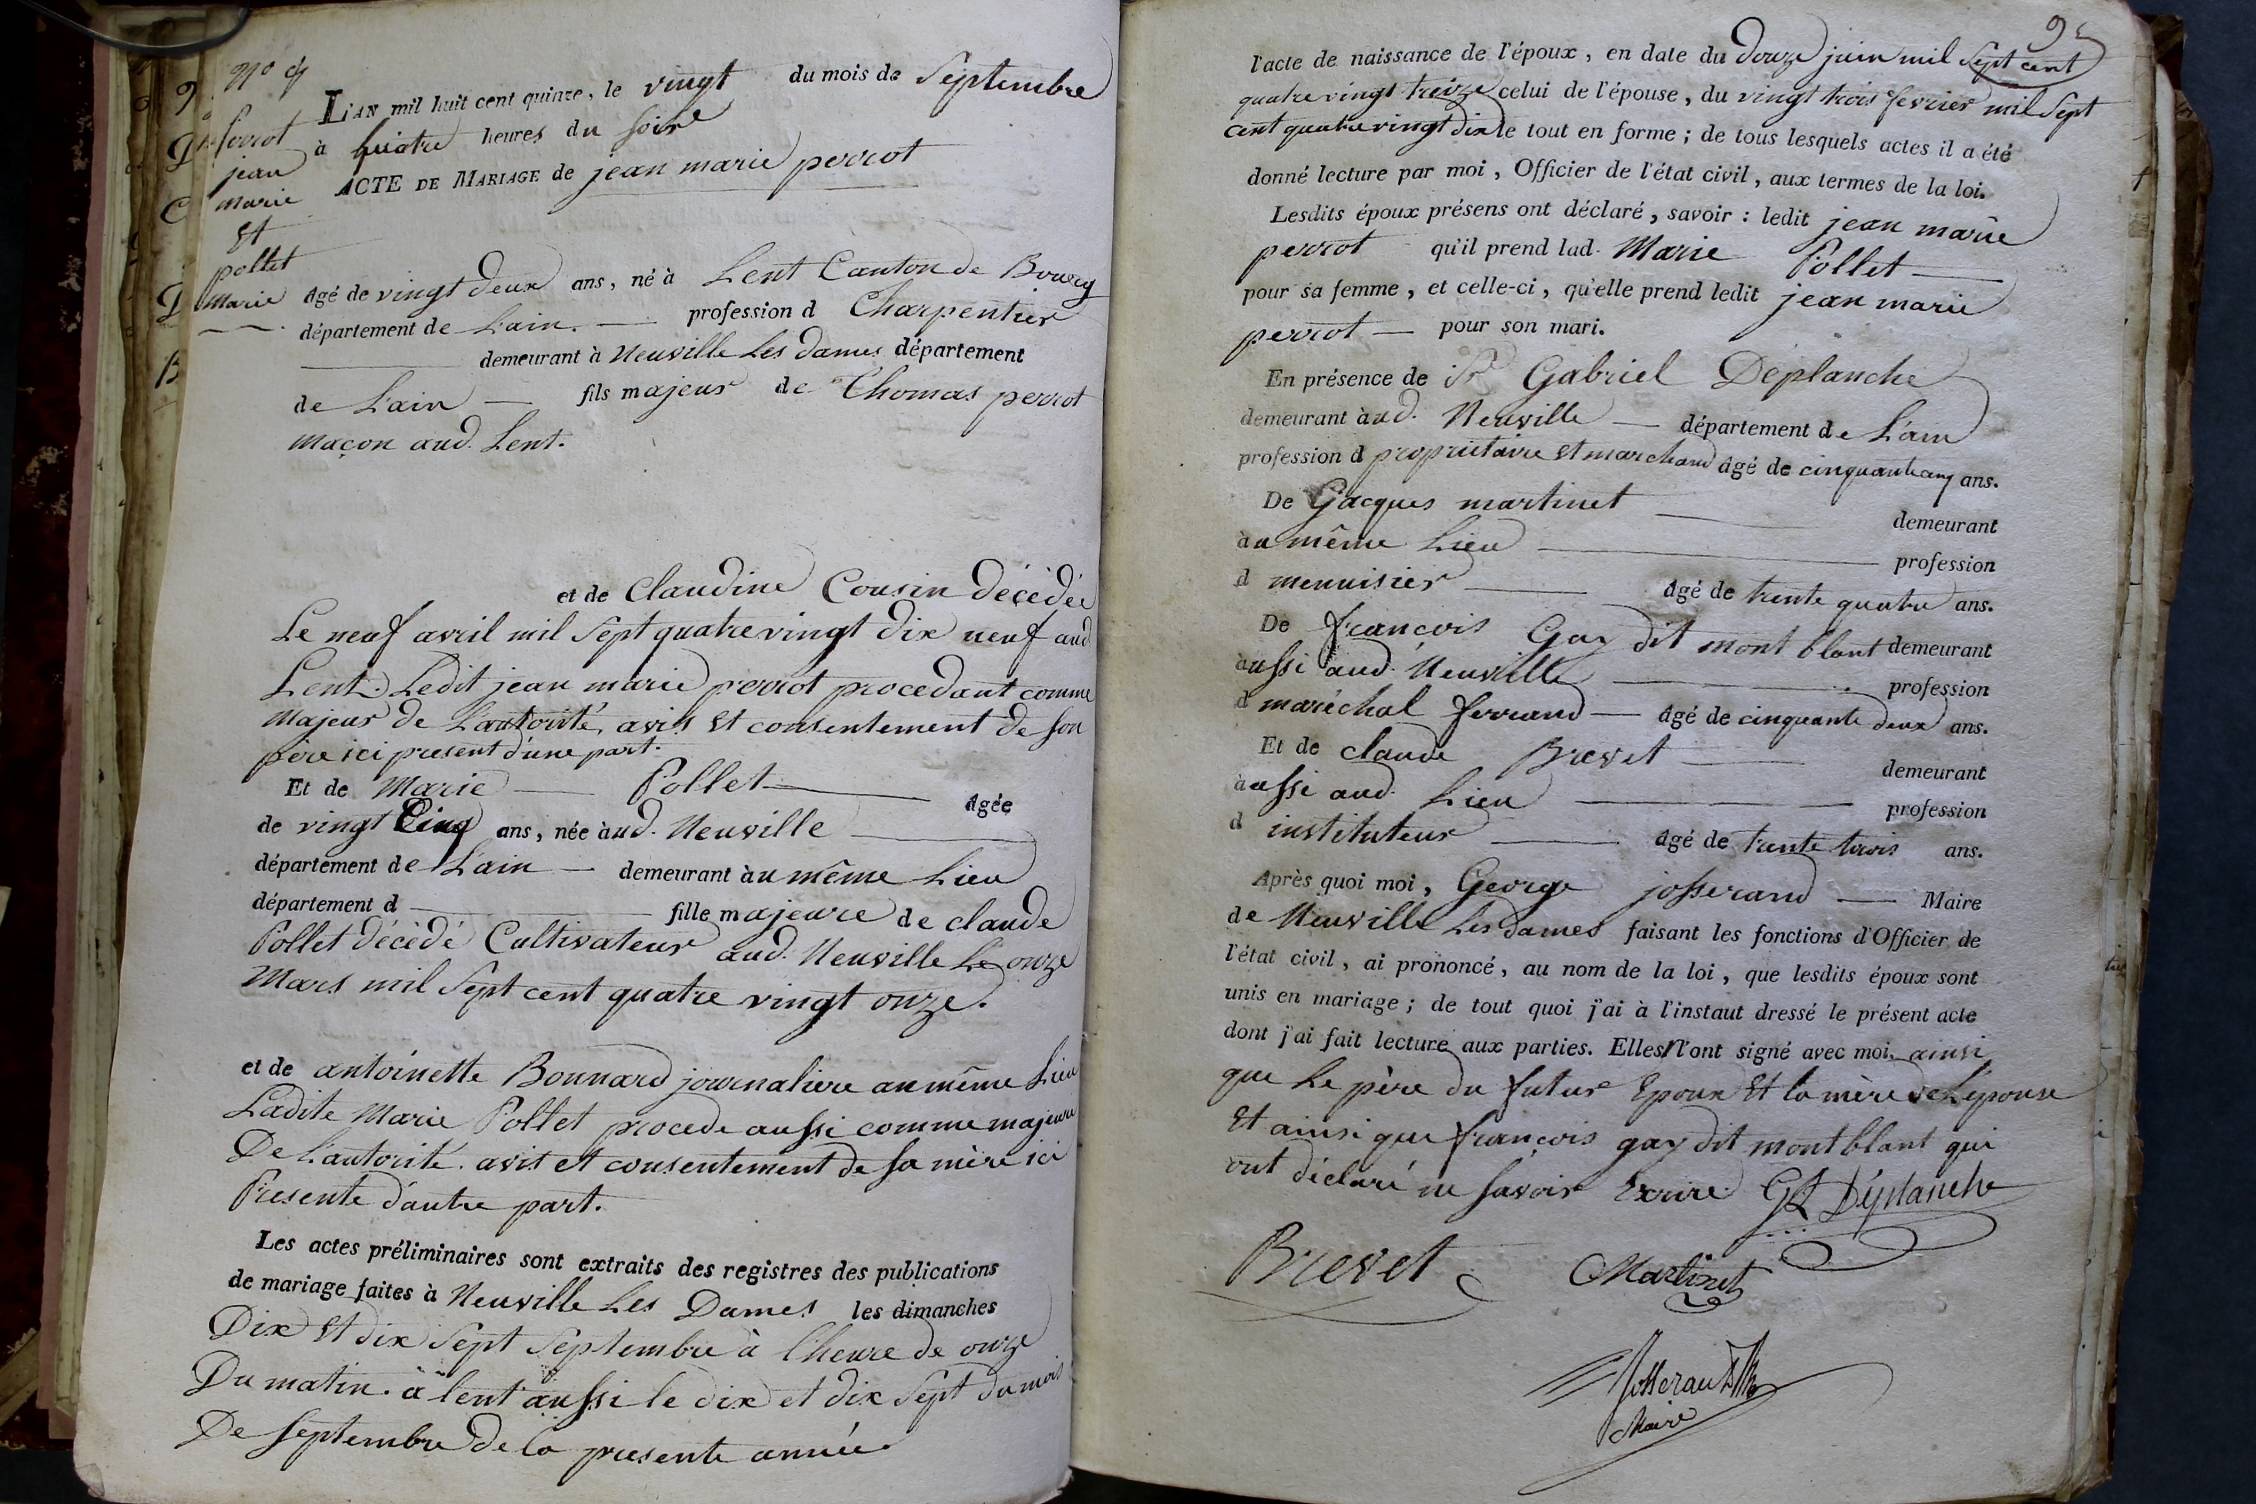 Perrot
jean
marie
Et
pollet
marie
L'AN mil huit cent quinze, le vingt du mois de Septembre
à quatre heures du soir
ACTE DE MARIAGE de jean marie perrot
âgé de vingt deux ans, né à Lent Canton de Bourg
département de L'ain. — profession d Charpentier
demeurant à Neuville Les dames département
de L'ain — fils majeur de Thomas perrot
maçon aud. Lent.
et de Claudine Cousin décédée
Le neuf avril mil Sept quatre vingt dix neuf aud
Lent. Ledit jean marie perrot procedant comme
majeur de L'autorité, avis Et consentement de son
père ici present d'une part.
Et de Marie — Pollet — âgée
de vingt Cinq ans, née à ud. Neuville
département de L'ain — demeurant àu même Lieu
département d — fille majeure de claude
Pollet décédé Cultivateur aud. Neuville Le onze
Mars mil Sept cent quatre vingt onze.
et de antoinette Bonnard journaliere au même Lieu
Ladite Marie Pollet procede aussi comme majeure
De L'autorité. avis et consentement de sa mère ici
Presente d'autre part.
Les actes préliminaires sont extraits des registres des publications
de mariage faites à Neuville Les Dames les dimanches
Dix Et dix Sept Septembre à l'heure de onze
Du matin. à lent aussi le dix et dix Sept du mois
De Septembre de la presente année
l'acte de naissance de l'époux, en date du douze juin mil Sept cent
quatre vingt treize celui de l'épouse, du vingt trois fevrier mil Sept
cent quatre vingt dix le tout en forme; de tous lesquels actes il a été
donné lecture par moi, Officier de l'état civil, aux termes de la loi.
Lesdits époux présens ont déclaré, savoir: ledit jean marie
perrot qu'il prend lad. Marie Pollet —
pour sa femme, et celle-ci, qu'elle prend ledit jean marie
perrot — pour son mari.
En présence de Sr Gabriel Déplanche
demeurant àud. Neuville — département de L'ain
profession d propriétaire Et marchand âgé de cinquante cinq ans.
De Jacques martinet — demeurant
àu même Lieu — profession
d menuisier — âgé de trente quatre ans.
De françois Gay dit mont blant demeurant
àussi aud. Neuville — profession
d maréchal ferrand — âgé de cinquante deux ans.
Et de claude Brevet — demeurant
àussi aud. Lieu — profession
d instituteur — âgé de trente trois ans.
Après quoi moi, George josserand — Maire
de Neuville Les dames faisant les fonctions d'Officier de
l'état civil, ai prononcé, au nom de la loi, que lesdits époux sont
unis en mariage; de tout quoi j'ai à l'instaut dressé le présent acte
dont j'ai fait lecture aux parties. Elles n'l'ont signé avec moi. ainsi
que Le père du futur Epoux Et la mère de L'épouse
Et ainsi que françois gay dit mont blant qui
ont déclaré ne Savoir Ecrire. Gl Déplanche
Brevet Martinet
Josserand
Maire